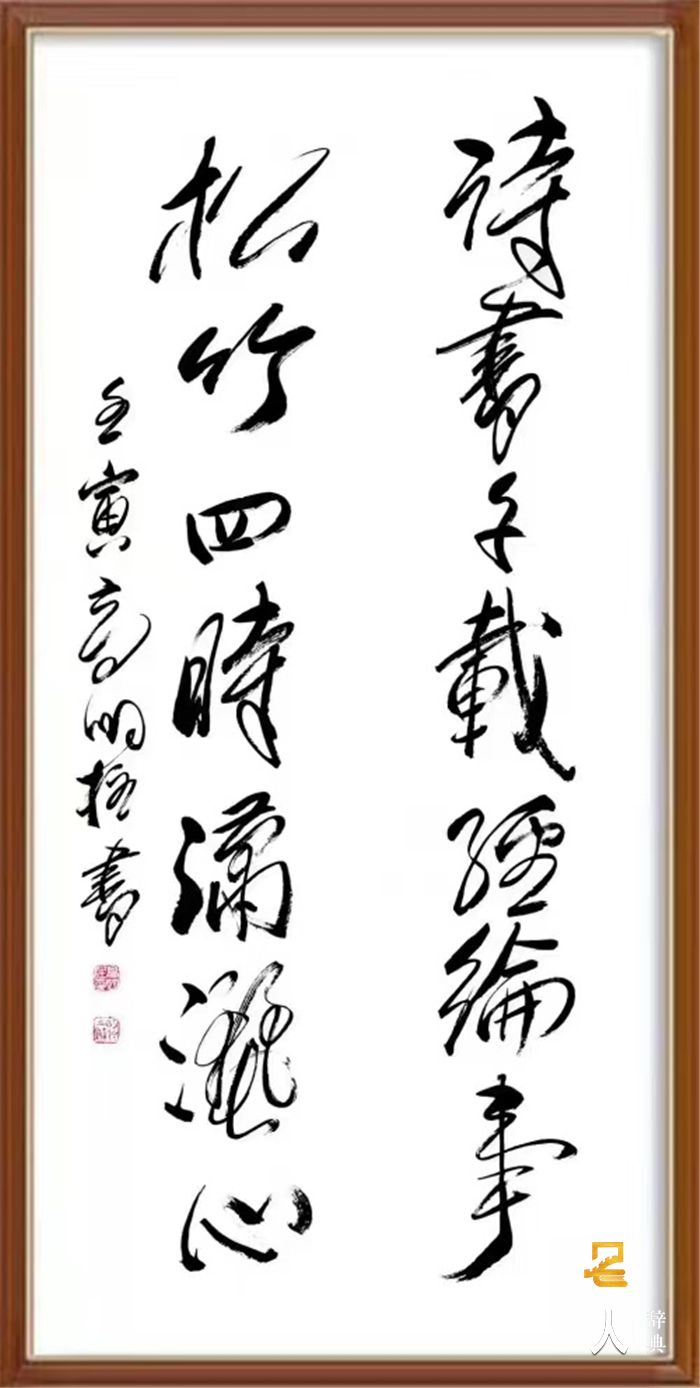 詩書千載經綸事
松竹四時瀟灑心
壬寅高明書
名人辞典